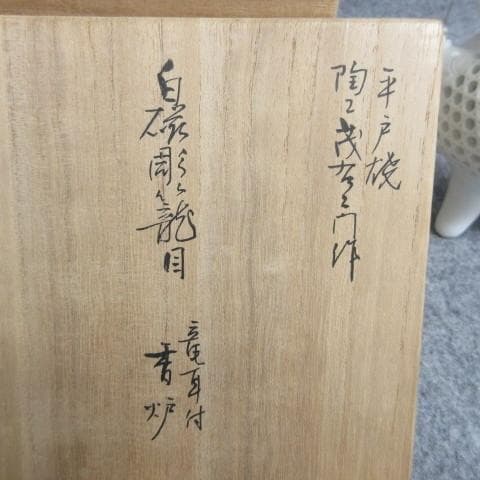 平戸焼
陶工茂右ヱ門作
白磁彫籠目
竜耳付
香炉